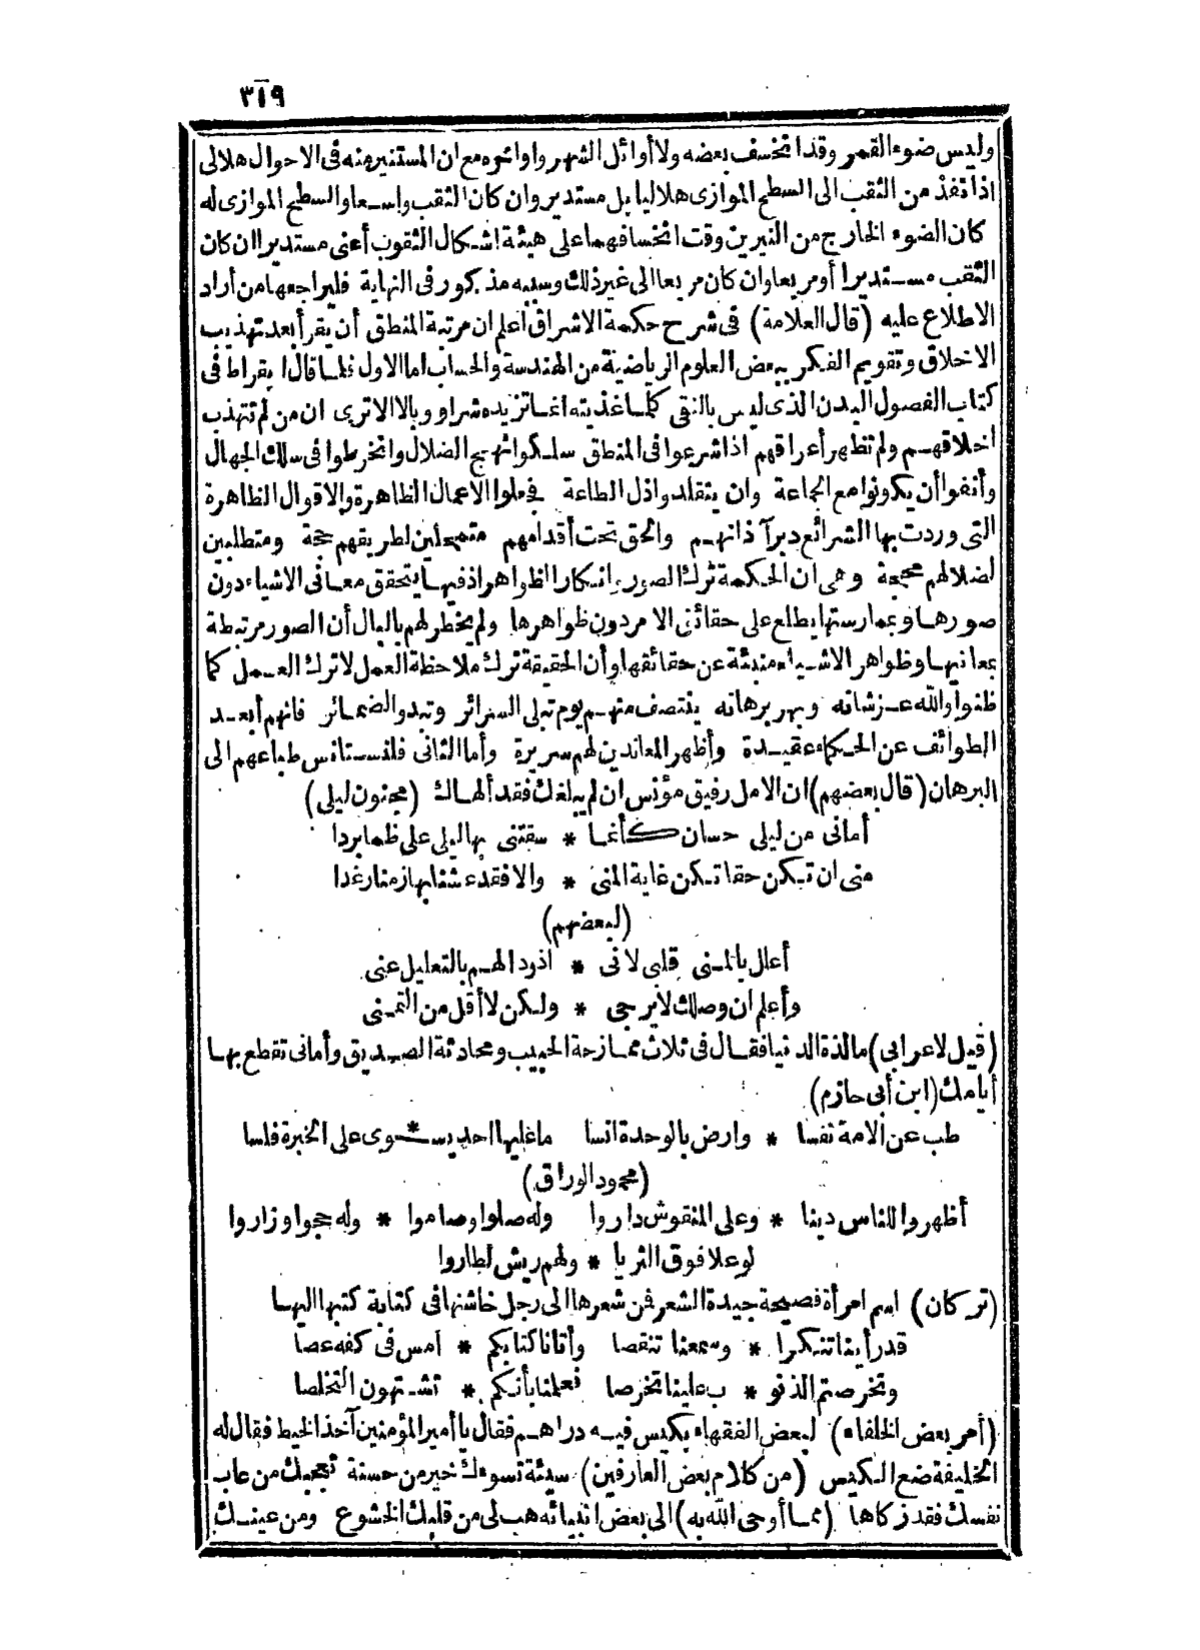 ٣١٩
وليس ضوء القمر وقد انخسف بعضه ولا أوائل الشهر وأواخره مع ان المستنير منه فى الاحوال هلالى
اذا نفذ من الثقب الى السطح الموازى هلاليا بل مستديرا وان كان الثقب واسعا والسطح الموازى له
كان الضوء الخارج من النيرين وقت انخسافهما على هيئة اشكال الثقوب أعنى مستديرا ان كان
الثقب مستديرا أو مربعا وان كان مربعا الى غير ذلك وسببه مذكور فى النهاية فليراجعها من أراد
الاطلاع عليه (قال العلامة) فى شرح حكمة الاشراق اعلم ان مرتبة المنطق أن يقرأ بعد تهذيب
الاخلاق وتقويم الفكر ببعض العلوم الرياضية من الهندسة والحساب اما الاول فلما قال ابقراط فى
كتاب الفصول البدن الذى ليس بالنقى كلما غذيته انما تزيده شرا ووبالا الا ترى ان من لم تتهذب
اخلاقهم ولم تطهر أعراقهم اذا شرعوا فى المنطق سلكوا نهج الضلال وانخرطوا فى سلك الجهال
وأنفوا أن يكونوا مع الجماعة وان يتقلدوا ذل الطاعة فجعلوا الاعمال الظاهرة والاقوال الظاهرة
التى وردت بها الشرائع دبر آذانهم والحق تحت أقدامهم متمحلين لطريقهم حجة ومتطلبين
لضلالهم محجة وهى ان الحكمة ترك الصور وانكار الظواهر اذ فيها يتحقق معانى الاشياء دون
صورها وبممارستها يطلع على حقائق الامر دون ظواهرها ولم يخطر لهم بالبال أن الصور مرتبطة
بمعانيها وظواهر الاشياء منبئة عن حقائقها وأن الحقيقة ترك ملاحظة العمل لا ترك العمل كما
ظنوا والله عز شانه وبهر برهانه ينتصف منهم يوم تبلى السرائر وتبدو الضمائر فانهم أبعد
الطوائف عن الحكماء عقيدة وأظهر المعاندين لهم سريرة وأما الثانى فلتستانس طباعهم الى
البرهان (قال بعضهم) ان الامل رفيق مؤنس ان لم يبلغك فقد ألهاك (مجنون ليلى)
أمانى من ليلى حسان كأنما * سقتنى بها ليلى على ظما بردا
منى ان تكن حقا تكن غاية المنى * والا فقد عشنا بها زمنا رغدا
(لبعضهم)
أعلل بالمنى قلبى لانى * اذود الهم بالتعليل عنى
وأعلم ان وصلك لا يرجى * ولكن لا أقل من التمنى
(قيل لاعرابى) ما لذة الدنيا فقال فى ثلاث ممازحة الحبيب ومحادثة الصديق وأمانى تقطع بها
أيامك (ابن أبى حازم)
طب عن الامة نفسا * وارض بالوحدة انسا ما عليها احد يسـ * ـتوى على الخبرة فلسا
(محمود الوراق)
أظهروا للناس دينا * وعلى المنقوش داروا وله صلوا وصاموا * وله حجوا وزاروا
لو علا فوق الثريا * ولهم ريش لطاروا
(تركان) اسم امرأة فصيحة جيدة الشعر فن شعرها الى رجل خاشنها فى كتابة كتبها اليها
قد رأينا تنكرا * وسمعنا تنقصا وأتانا كتابكم * امس فى كفه عصا
وتخرصتم الذنو * ب علينا تخرصا فعلمنا بأنكم * تشتهون التخلصا
(أمر بعض الخلفاء) لبعض الفقهاء بكيس فيه دراهم فقال يا أمير المؤمنين آخذ الخيط فقال له
الخليفة ضع الكيس (من كلام بعض العارفين) سيئة تسوءك خير من حسنة تعجبك من عاب
نفسك فقد زكاها (مما أوحى الله به) الى بعض انبيائه هب لى من قلبك الخشوع ومن عينك